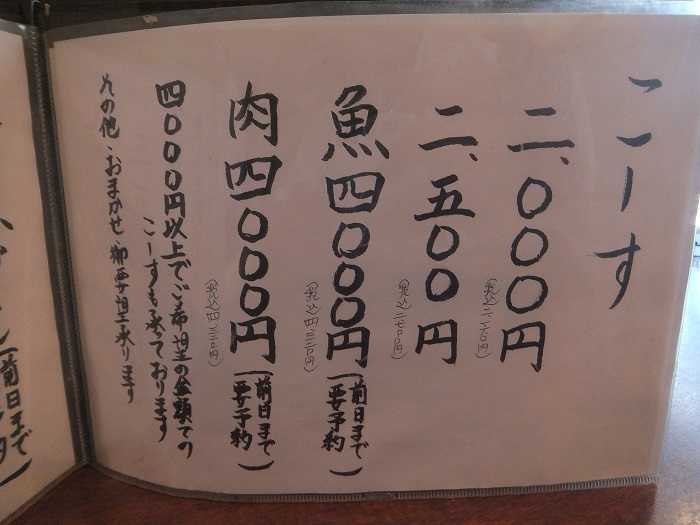 こーす
二、〇〇〇円
（税込二一六〇円）
二、五〇〇円
（税込二七〇〇円）
魚四〇〇〇円（前日まで要予約）
（税込四、三二〇円）
肉四〇〇〇円（前日まで要予約）
（税込四、三二〇円）
四〇〇〇円以上でご希望の金額での
こーすも承っております
その他・おまかせ・御要望承ります
（前日まで